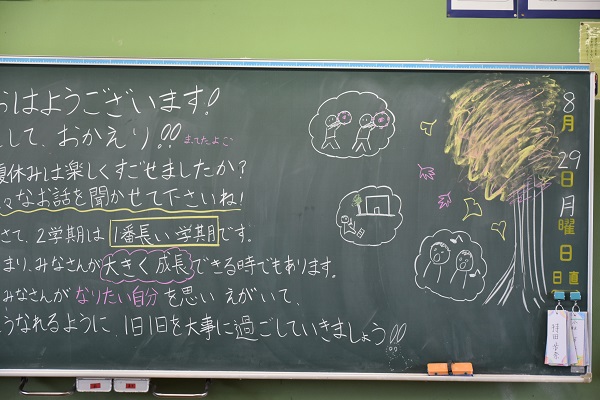 おはようございます!
そして、おかえり!!
まってたよ♡
夏休みは楽しくすごせましたか?
々なお話を聞かせて下さいね!
さて、2学期は 1番長い学期 です。
まり、みなさんが大きく成長できる時でもあります。
みなさんが なりたい自分 を思いえがいて、
うなれるように、1日1日を大事に過ごしていきましょう!!
8月29日月曜日
日直